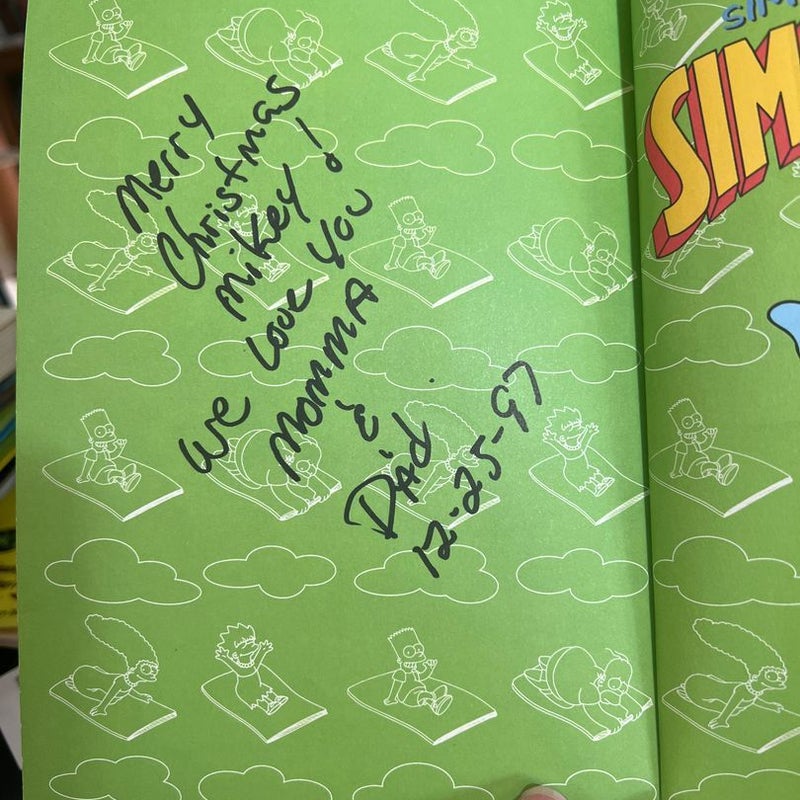 Merry
Christmas
Mikey!
We Love You
MOMMA
&
DAd
12-25-97
SIM
SIM